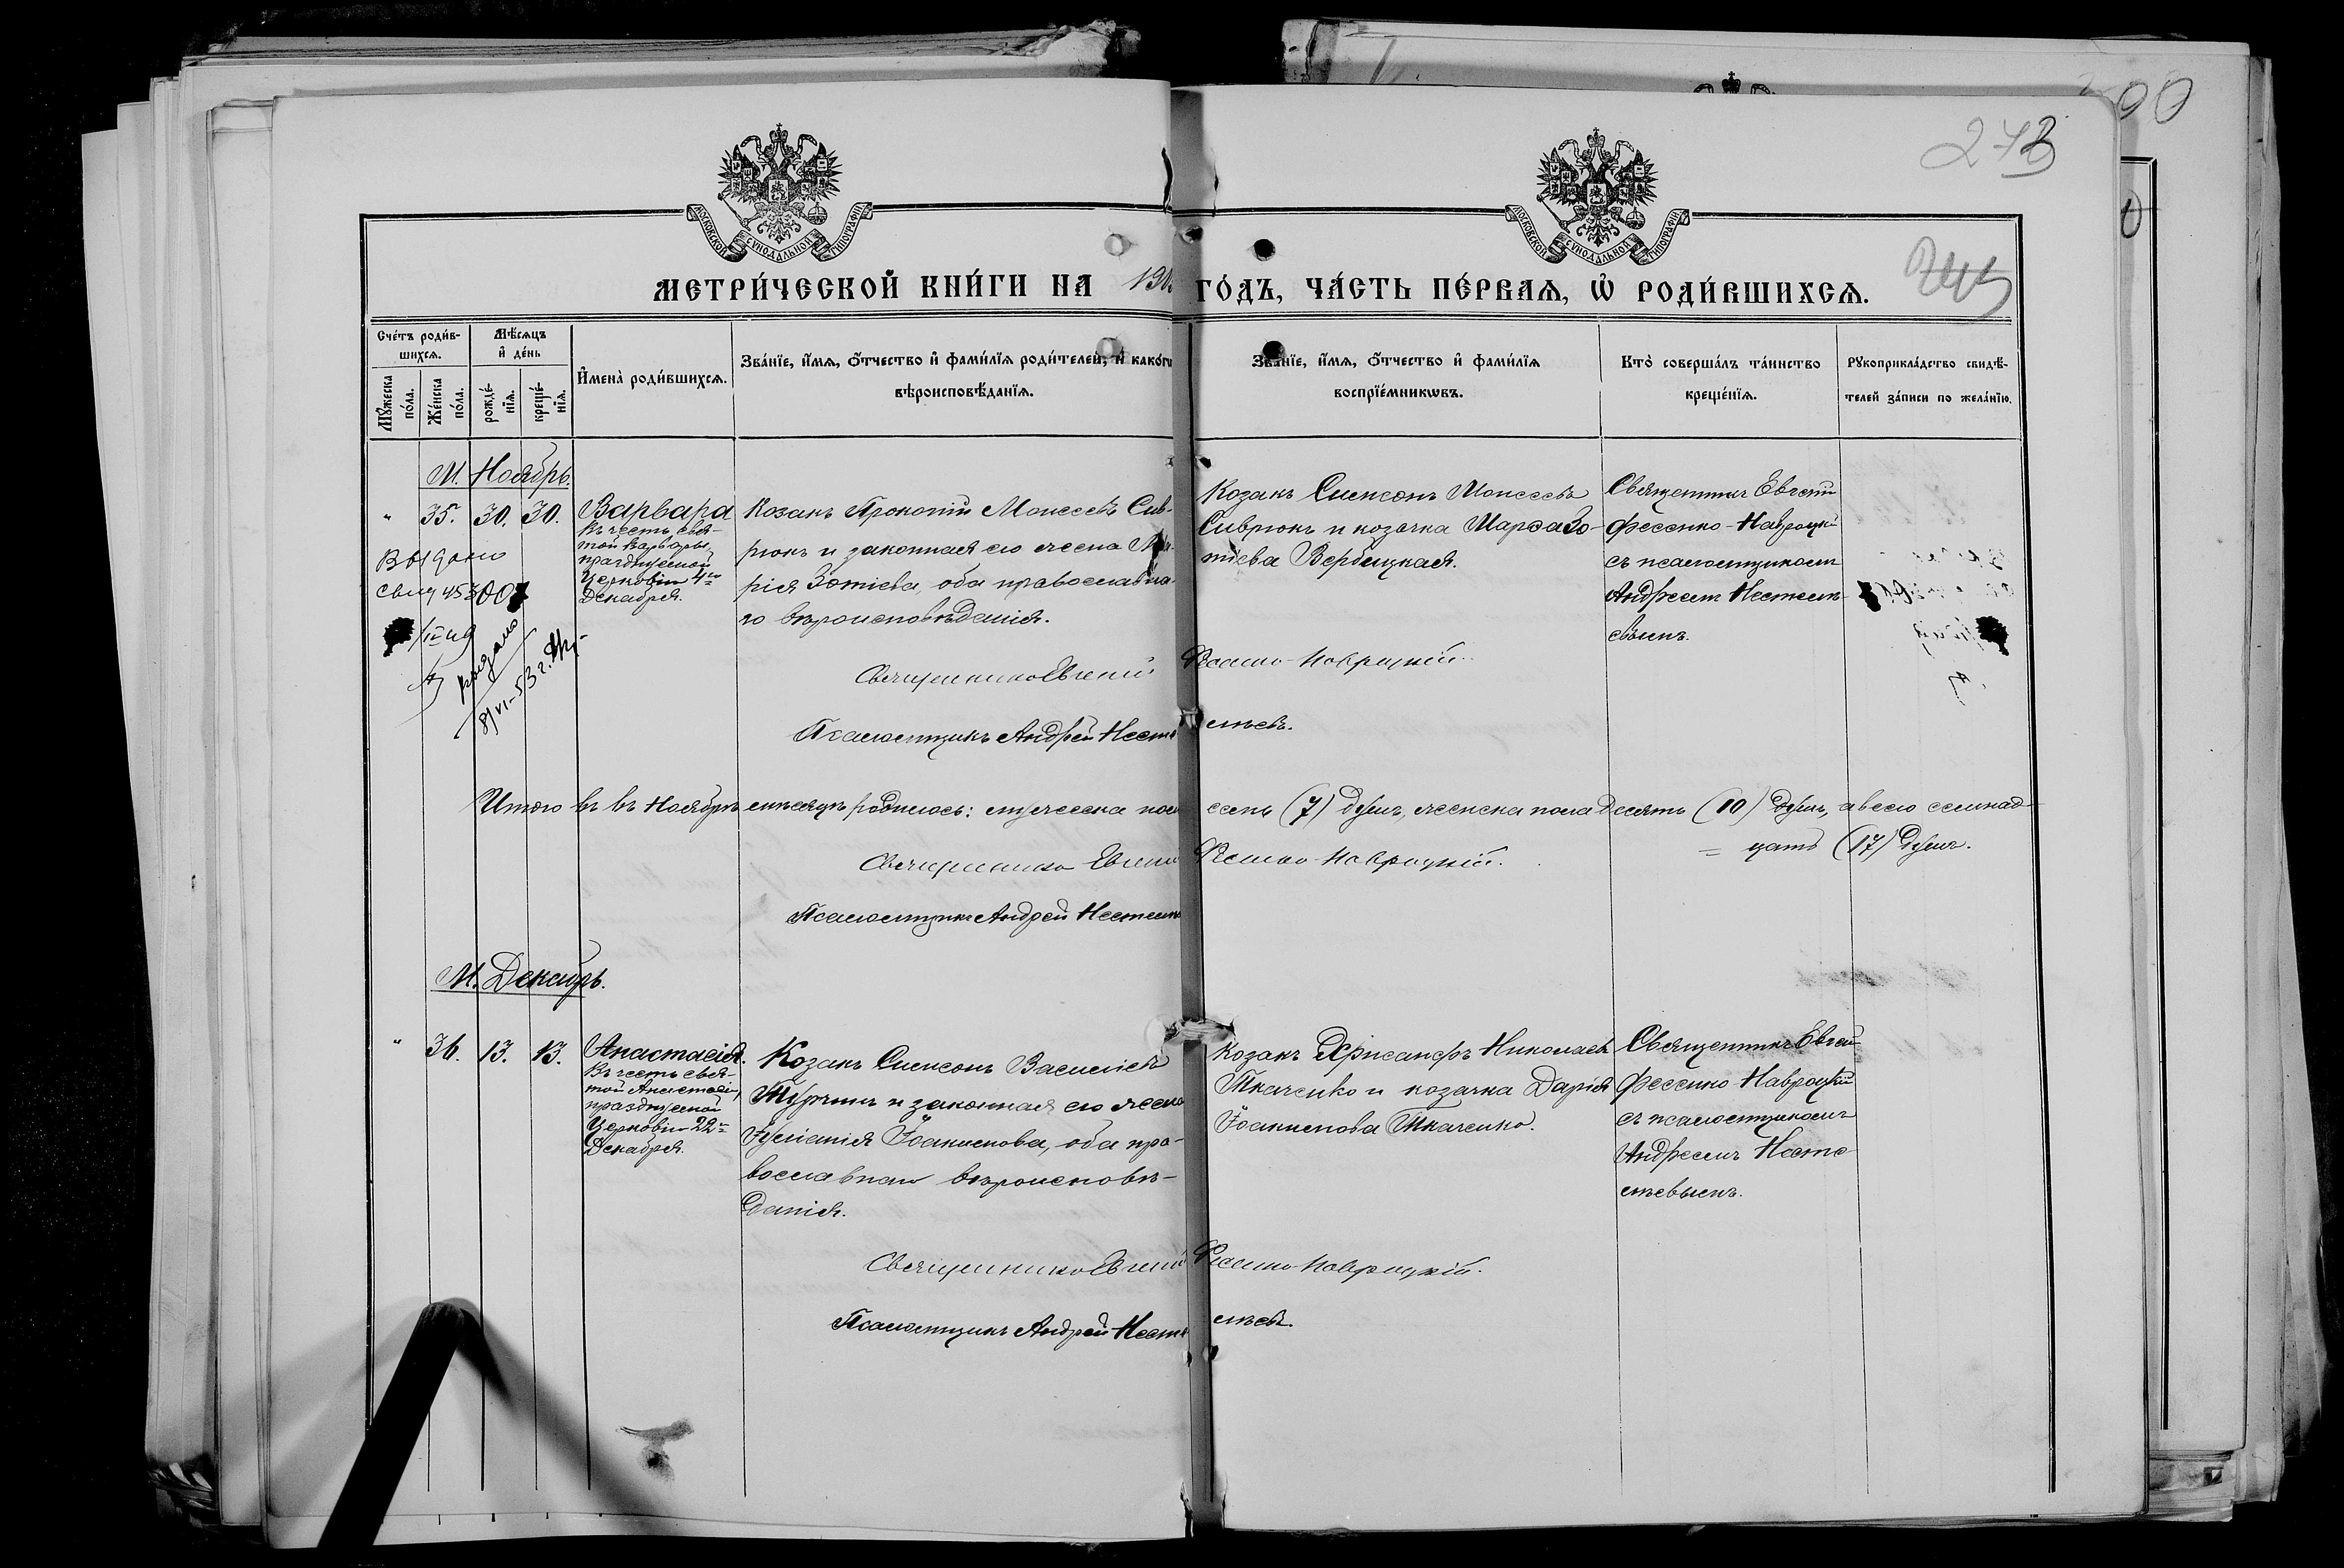 273
МОСКОВСКОЙ СУНОДАЛЬНОЙ ТИПОГРАФІИ
МОСКОВСКОЙ СУНОДАЛЬНОЙ ТИПОГРАФІИ
МЕТРИ́ЧЕСКОЙ КНИ́ГИ НА 190 ГО́ДЪ, ЧА́СТЬ ПЕ́РВАѦ, Ѡ҆ РОДИ́ВШИХСѦ.
Сче́тъ роди́в-
шихсѧ.
Мѣ́сѧцъ
и҆ де́нь
Мꙋ́жеска
по́ла.
Же́нска
по́ла.
рожде́-
нїѧ.
креще́-
нїѧ.
И҆мена̀ роди́вшихсѧ.
Зва́нїе, и҆́мѧ, ѻ҆́тчество и҆ фами́лїѧ роди́телей, и҆ како́гѡ
вѣроисповѣ́данїѧ.
Зва́нїе, и҆́мѧ, ѻ҆́тчество и҆ фами́лїѧ
воспрїе́мникѡвъ.
Кто̀ соверша́лъ та́инство
креще́нїѧ.
Рꙋкоприкла́дство свидѣ́-
телей за́писи по жела́нїю.
М. Ноябрь.
" 35. 30. 30.
Варвара
Въ честь свя-
той Варвары,
празднуемой
Церковію 4го
Декабря.
Козакъ Прокопій Моисеевъ Сив-
рюкъ и законная его жена Ма-
рія Зотіева, оба православна-
го вѣроисповѣданія.
Козакъ Симеонъ Моисеевъ
Сиврюкъ и козачка Марѳа Зо-
тіева Вербицкая.
Священникъ Евгеній
Фесенко-Навроцкій
съ псаломщикомъ
Андреемъ Нестель-
евымъ.
Выдано
свид
Видано
8/VI-53 г.
Священникъ Евгеній Фесенко-Навроцкій.
Псаломщикъ Андрей
Итого въ въ Ноябрѣ мѣсяцѣ родилось: мужеска пола семь (7) душъ, женска пола десять (10) душъ, а всего семнад-
= цать (17) душъ.
Священникъ Евгеній Фесенко-Навроцкій.
Псаломщикъ Андрей
М. Декабрь.
" 36. 13. 13.
Анастасія.
Въ честь свя-
той Анастасіи,
празднуемой
Церковію 22го
Декабря.
Козакъ Симеонъ Василіевъ
и законная его жена
Іуліанія Іоакимова, оба пра-
вославнаго вѣроисповѣ-
данія.
Козакъ Хрисанфъ Николаевъ
Ткаченко и козачка Дарія
Іоакимова Ткаченко.
Священникъ Евгеній
Фесенко-Навроцкій
съ псаломщикомъ
Андреемъ
Священникъ Евгеній Фесенко-Навроцкій.
Псаломщикъ Андрей